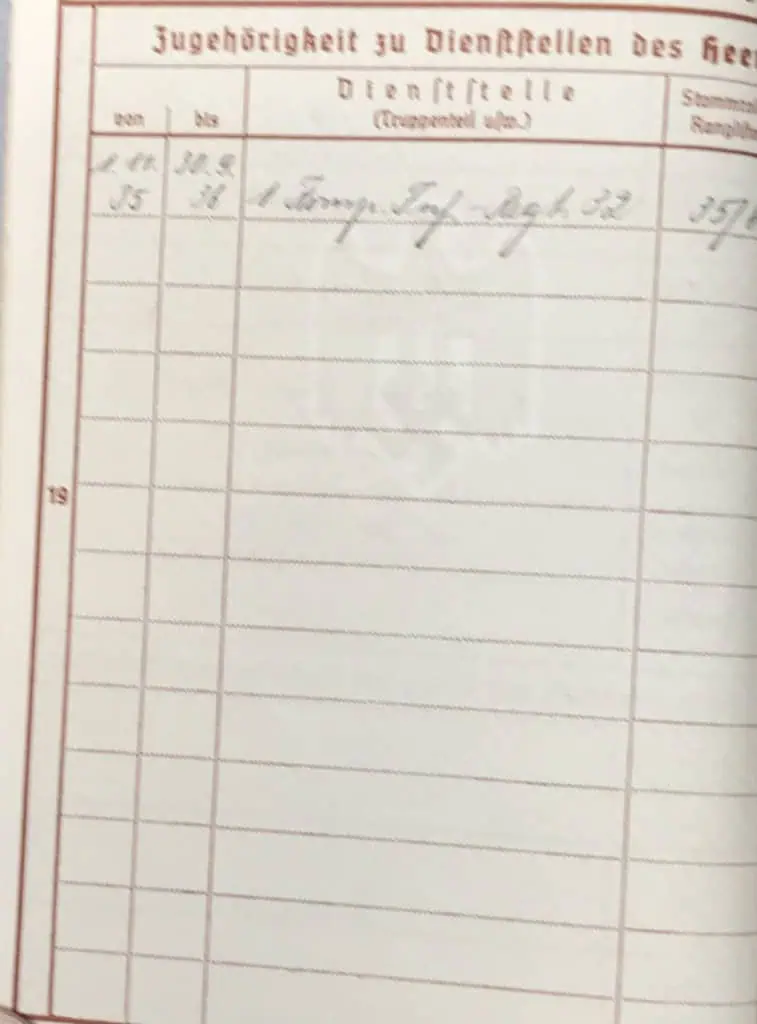 Zugehörigkeit zu Dienststellen des Heer
von bis
Dienststelle
(Truppenteil usw.)
Stammrol
Ranglis
1.11. 30.9.
35 36 1 Komp. Inf.-Regt. 32 35/
19